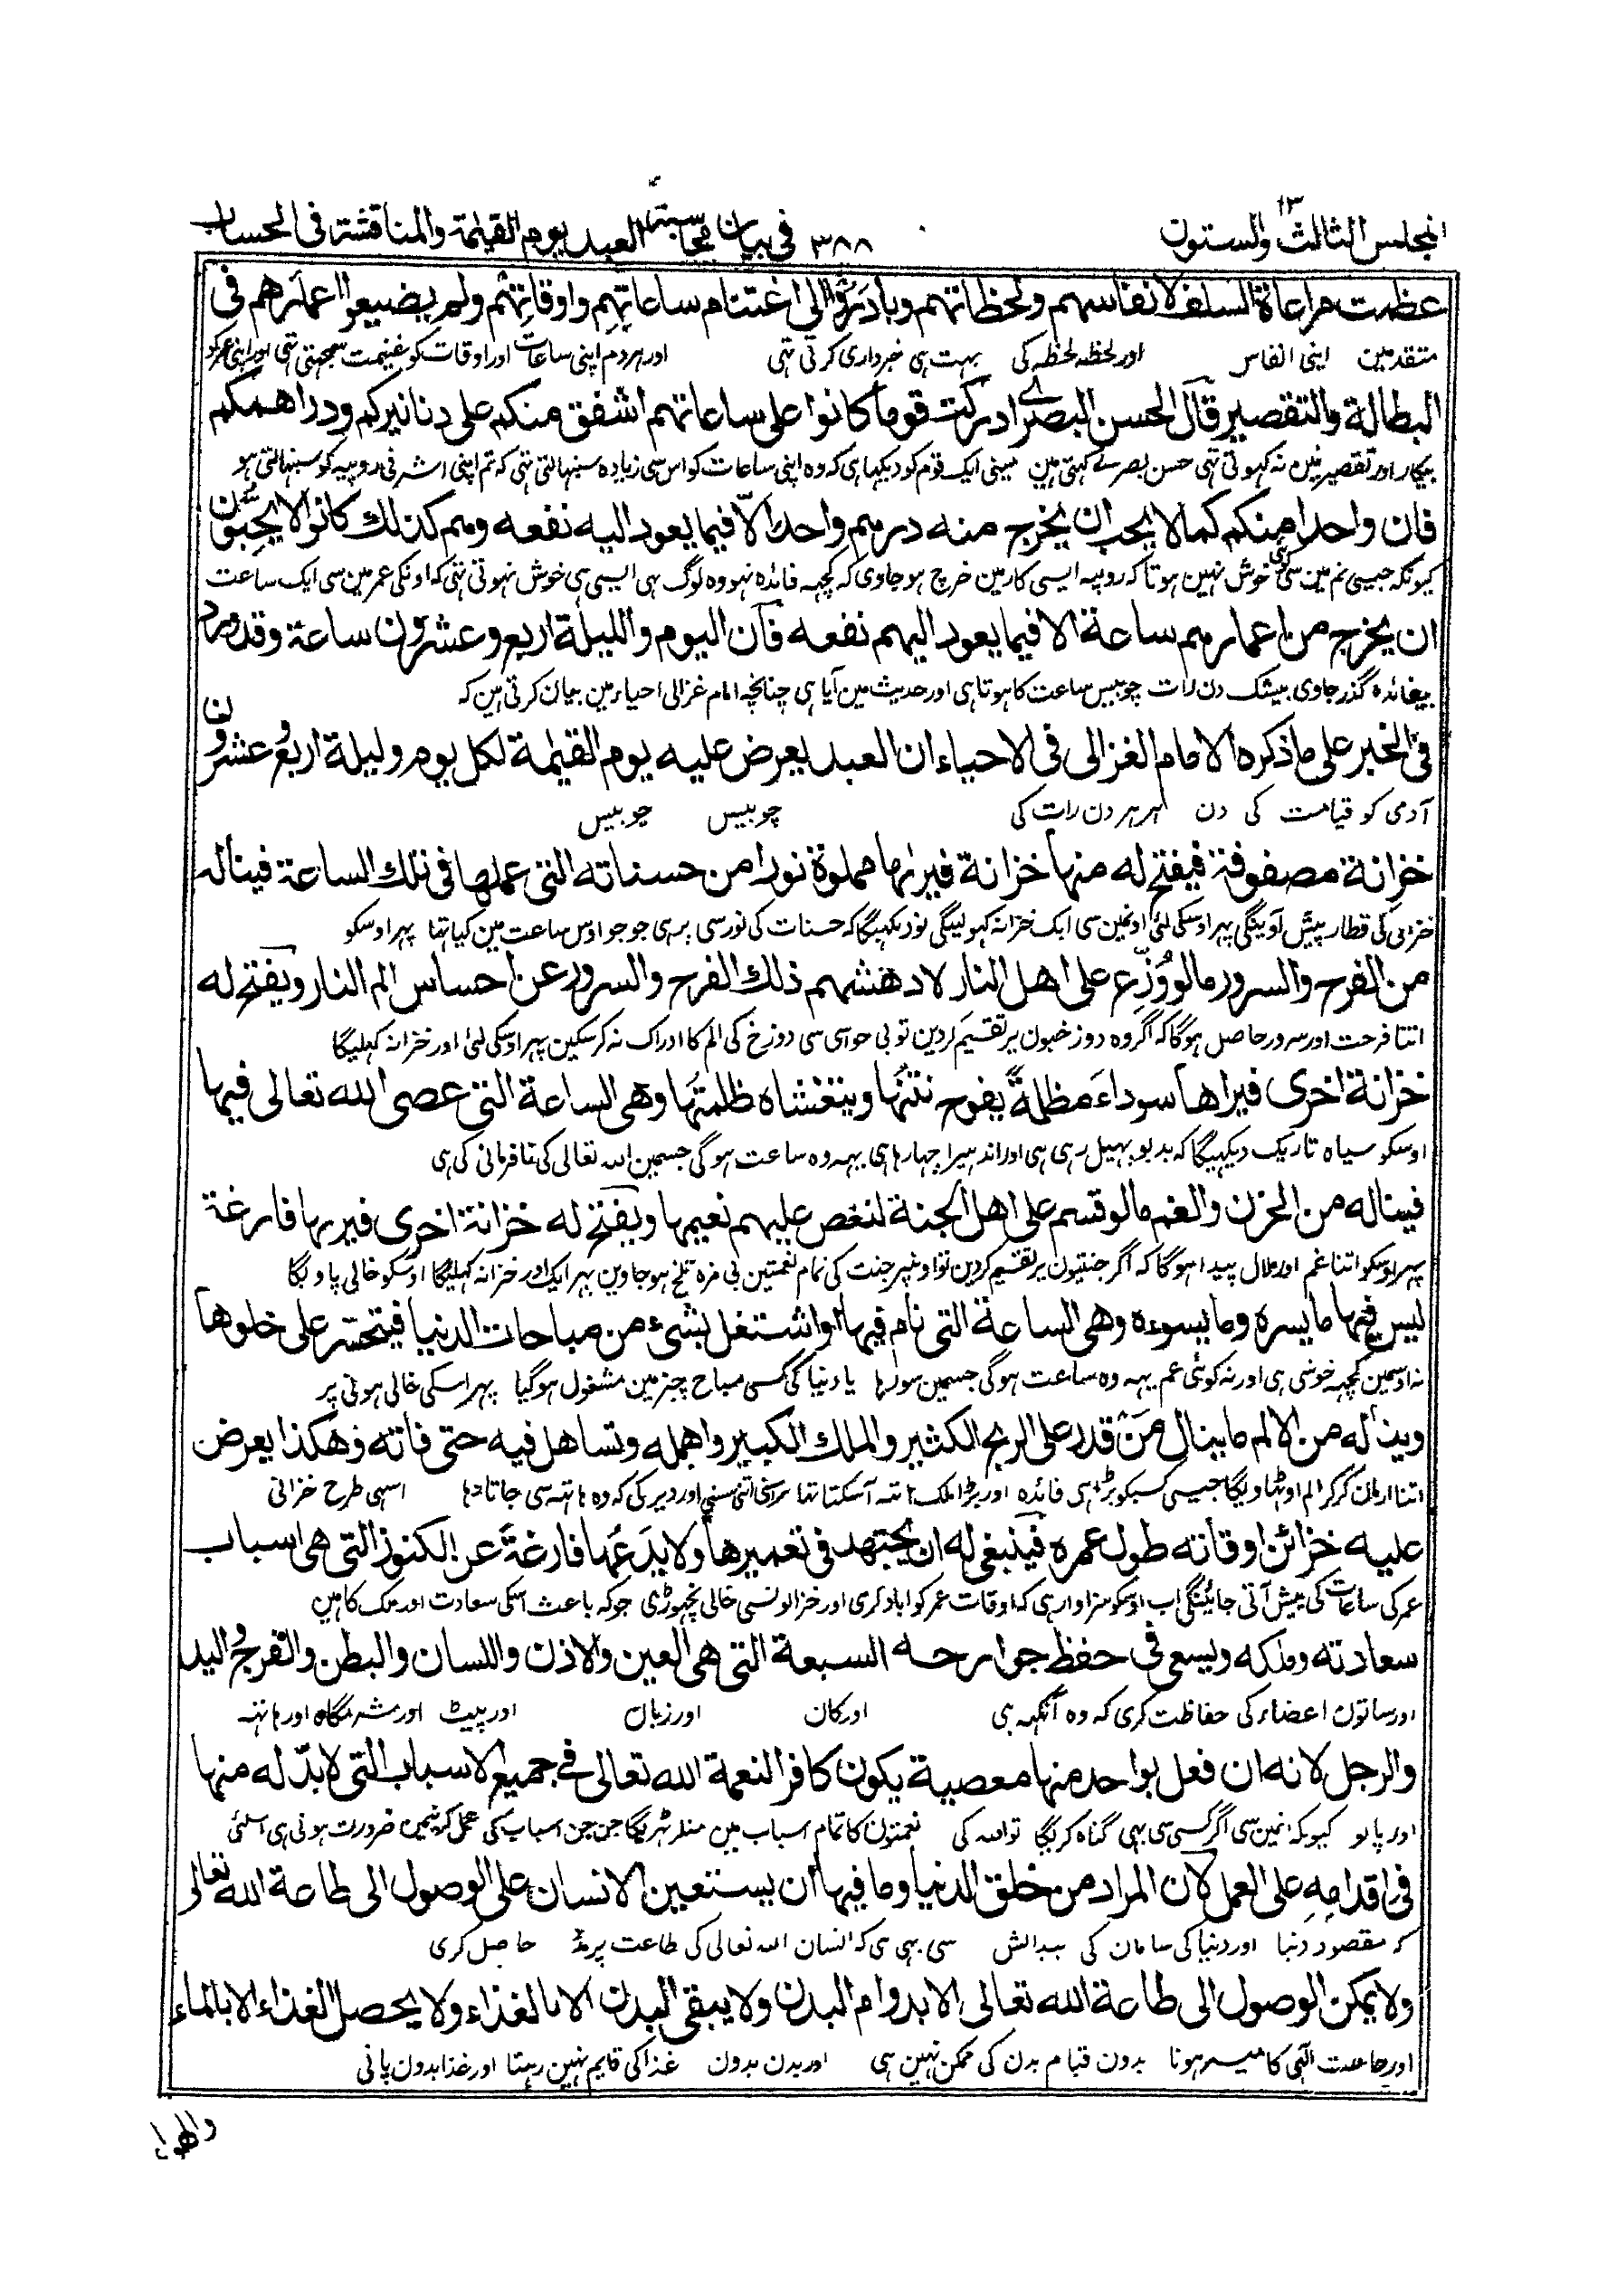 المجلس الثالث والستون ٣٨٨ في بيان محاسبة العبد يوم القيٰمة والمناقشة في الحساب
عظمت مراعاة السلف لانفاسهم ولحظاتهم وبادروا الى اغتنام ساعاتهم واوقاتهم ولم يضيعوا اعمارهم في
متقدمین اپنی انفاس اور لحظہ لحظہ کی بہت ہی خبرداری کرتی تہی اور ہردم اپنی ساعات اور اوقات کو غنیمت سمجہتی تہی اور اپنی عمر کو
البطالة والتقصير قال الحسن البصري ادركت قوما كانوا على ساعاتهم اشفق منكم على دنانيركم ودراهمكم
بیکار اور تقصیر مین نہ کہوتی تہی حسن بصری کہتی ہین مینی ایک قوم کو دیکہا ہی کہ وہ اپنی ساعات کو اس سی زیادہ سنبہالتی تہی کہ تم اپنی اشرفی روپیہ کو سنبہالتی ہو
فان واحدا منكم كما لا يحب ان يخرج منه درهم واحد الا فيما يعود اليه نفعه وهم كذلك كانوا لا يحبون
کیونکہ جیسی تم مین سی کوئی خوش نہین ہوتا کہ روپیہ ایسی کار مین خرچ ہو جاوی کہ کچہہ فائدہ نہو وہ لوگ بہی ایسی ہی خوش نہوتی تہی کہ اونکی عمر مین سی ایک ساعت
ان يخرج من اعمارهم ساعة الا فيما يعود اليهم نفعه فان اليوم والليلة اربع وعشرون ساعة وقد ورد
بیفائدہ گذر جاوی بیشک دن رات چوبیس ساعت کا ہوتا ہی اور حدیث مین آیا ہی چنانچہ امام غزالی احیاء مین بیان کرتی ہین کہ
في الخبر على ما ذكره الامام الغزالى فى الاحياء ان العبد يعرض عليه يوم القيٰمة لكل يوم وليلة اربع عشرون
آدمی کو قیامت کی دن ہر ہر دن رات کی چوبیس چوبیس
خزانة مصفوفة فيفتح له منها خزانة فيراها مملوة نورا من حسناته التي عملها في تلك الساعة فيناله
خزانی کی قطار پیش آوینگی پہر اوسکی لئی اونمین سی ایک خزانہ کہولینگی تو دیکہیگا کہ حسنات کی نور سی بہرہی جو جو اوس ساعت مین کیا تہا پہر اوسکو
من الفرح والسرور ما لو وُزِّع على اهل النار لادهشهم ذلك الفرح والسرور عن احساس الم النار ويفتح له
اتنا فرحت اور سرور حاصل ہوگا کہ اگر وہ دوزخیون پر تقسیم کردین تو بی حواسی سی دوزخ کی الم کا ادراک نہ کرسکین پہر اوسکی لئی اور خزانہ کہلیگا
خزانة اخرى فيراها سوداء مظلمة يفوح نتنها ويتغشاه ظلمتها وهي الساعة التي عصى الله تعالى فيها
اوسکو سیاہ تاریک دیکہیگا کہ بدبو پہیل رہی ہی اور اندہیرا چہا رہا ہی یہہ وہ ساعت ہوگی جسمین اللہ تعالی کی نافرمانی کی ہی
فيناله من الحزن والغم ما لو قسم على اهل الجنة لنغص عليهم نعيمها ويفتح له خزانة اخرى فيريها فارغة
پہر اوسکو اتنا غم اور ملال پیدا ہوگا کہ اگر جنتیون پر تقسیم کردین تو اونپر جنت کی تمام نعمتین بی مزہ تلخ ہو جاوین پہر ایک اور خزانہ کہلیگا اوسکو خالی پاویگا
ليس فيها ما يسره وما يسوءه وهي الساعة التي نام فيها او اشتغل بشيء من مباحات الدنيا فيتحسر على خلوها
نہ اوسمین کچہہ خوشی ہی اور نہ کوئی غم یہہ وہ ساعت ہوگی جسمین سو رہا یا دنیا کی کسی مباح چیز مین مشغول ہوگیا پہر اسکی خالی ہونی پر
ويناله من الالم ما ينال من قدر على الربح الكثير والملك الكبير واهمله وتساهل فيه حتى فاته وهكذا يعرض
اتنا ارمان کر کر الم اوٹہاویگا جیسی کسیکو بڑا ہی فائدہ اور بڑا ملک ہاتہہ آسکتا تہا اتنی سستی اور دیر کی کہ وہ ہاتہہ سی جاتا رہا اسی طرح خزانی
عليه خزائن اوقاته طول عمره فينبغي له ان يجتهد في تعميرها ولا يدعها فارغة عن الكنوز التي هي اسباب
عمر کی ساعات کی پیش آتی جائینگی اب اوسکو سزاوار ہی کہ اوقات عمر کو اباد کری اور خزانونسی خالی نچہوڑی جو کہ باعث اسکی سعادت اور ملک کا ہین
سعادته وملكه ويسعى في حفظ جوارحه السبعة التي هي العين والاذن واللسان والبطن والفرج واليد
اور ساتون اعضاء کی حفاظت کری کہ وہ آنکہہ ہی اور کان اور زبان اور پیٹ اور شرمگاہ اور ہاتہہ
والرجل لانه ان فعل بواحد منها معصية يكون كافر النعمة الله تعالى في جميع الاسباب التي لابد له منها
اور پانو کیونکہ انمین سی اگر کسی سی بہی گناہ کریگا تو اللہ کی نعمتون کا تمام اسباب مین منکر ٹہریگا جن جن اسباب کی عمل کرنیمین ضرورت ہوتی ہی اسلئی
في اقدامه على العمل لان المراد من خلق الدنيا وما فيها ان يستعين الانسان على الوصول الى طاعة الله تعالى
کہ مقصود دنیا اور دنیا کی سامان کی پیدائش سی یہی ہی کہ انسان اللہ تعالی کی طاعت پر مدد حاصل کری
ولا يمكن الوصول الى طاعة الله تعالى الا بدوام البدن ولا يبقى البدن الا بالغذاء ولا يحصل الغذاء الا بالماء
اور طاعت الٰہی کا میسر ہونا بدون قیام بدن کی ممکن نہین ہی اور بدن بدون غذا کی قایم نہین رہتا اور غذا بدون پانی
والهواء